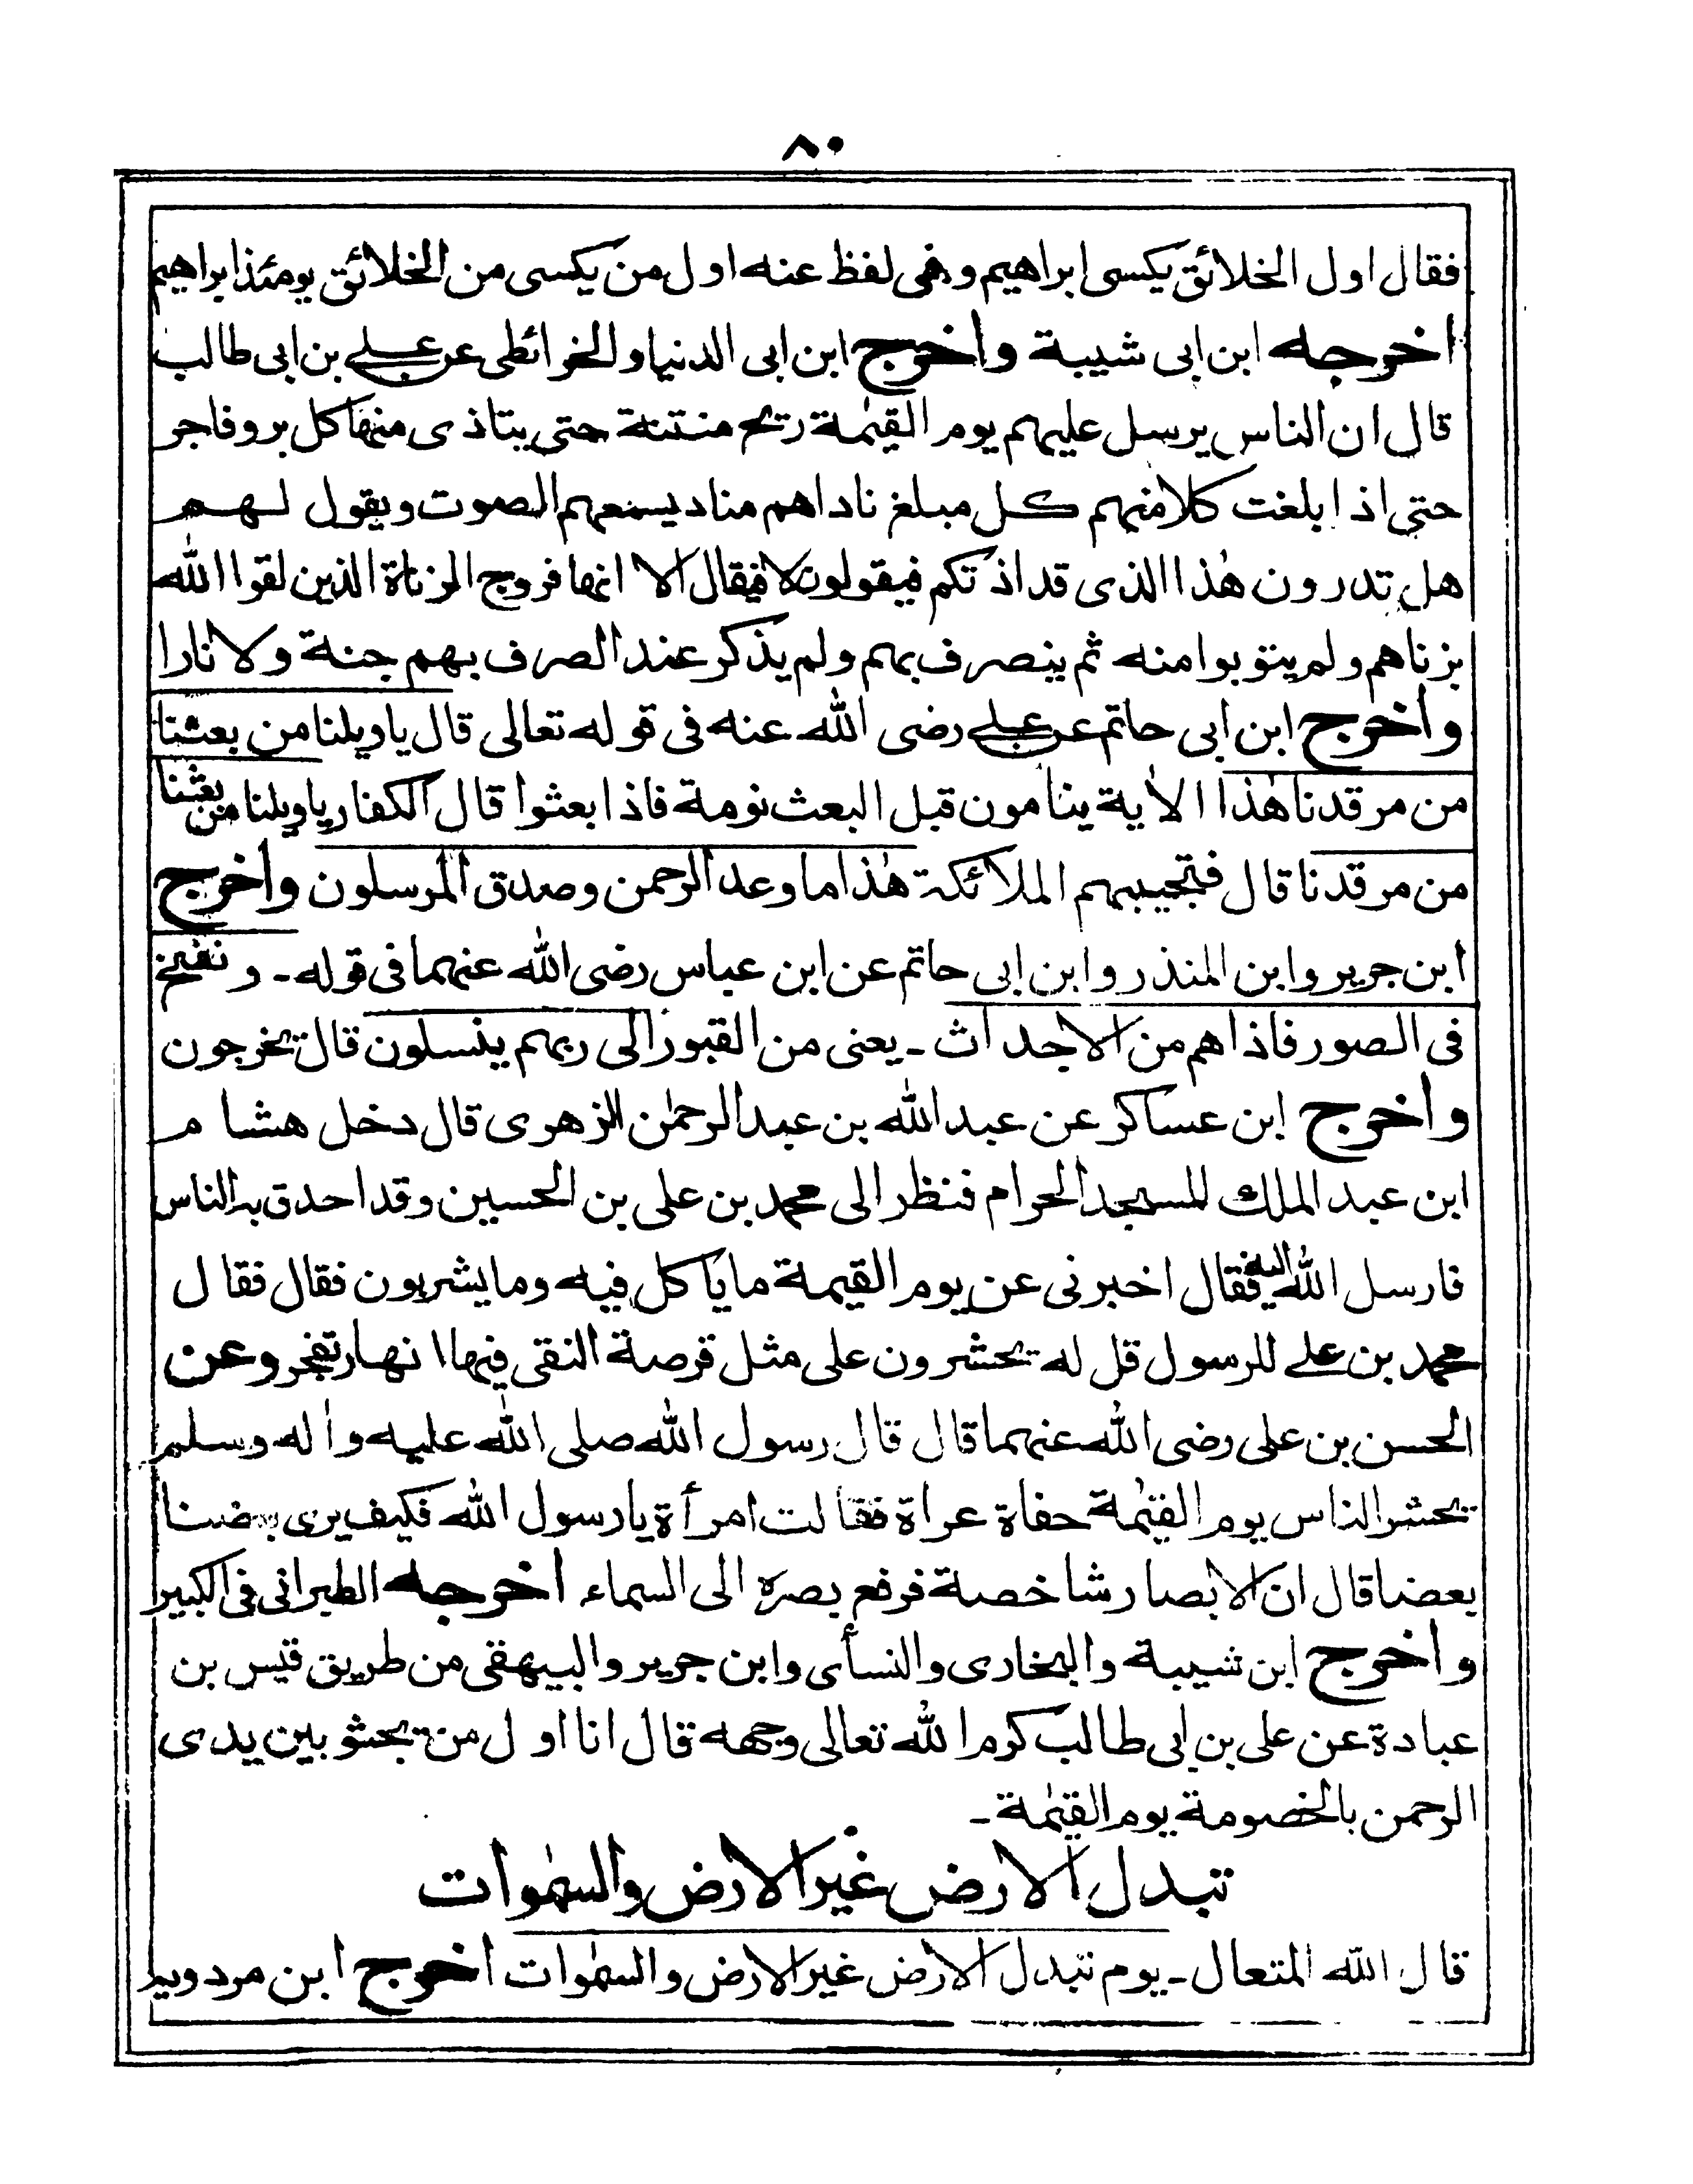 ٨٠
فقال اول الخلائق يكسى ابراهيم وفي لفظ عنه اول من يكسى من الخلائق يومئذ ابراهيم
اخرجه ابن ابى شيبة واخرج ابن ابى الدنيا والخرائطى عن على بن ابى طالب
قال ان الناس يرسل عليهم يوم القيٰمة ريح منتنة حتى يتاذى منها كل بر وفاجر
حتى اذا بلغت كلا منهم كل مبلغ ناداهم مناد يسمعهم الصوت ويقول لهم
هل تدرون هٰذا الذى قد اذتكم فيقولون لا فيقال الا انها فروج الزناة الذين لقوا الله
بزناهم ولم يتوبوا منه ثم ينصرف بهم ولم يذكر عند الصرف بهم جنة ولا نارا
واخرج ابن ابى حاتم عن على رضى الله عنه فى قوله تعالى قال ياويلنا من بعثنا
من مرقدنا هٰذا الاٰية ينامون قبل البعث نومة فاذا بعثوا قال الكفار ياويلنا من بعثنا
من مرقدنا قال فتجيبهم الملائكة هٰذا ما وعد الرحمن وصدق المرسلون واخرج
ابن جرير وابن المنذر وابن ابى حاتم عن ابن عباس رضى الله عنهما فى قوله ـ ونفخ
فى الصور فاذاهم من الاجداث ـ يعنى من القبور الى ربهم ينسلون قال يخرجون
واخرج ابن عساكر عن عبد الله بن عبد الرحمٰن الزهرى قال دخل هشام
ابن عبد الملك المسجد الحرام فنظر الى محمد بن على بن الحسين وقد احدق به الناس
فارسل الله اليه فقال اخبرنى عن يوم القيمة ما ياكل فيه وما يشربون فقال فقال
محمد بن على للرسول قل له يحشرون على مثل قرصة النقى فيها انهار تفجر وعن
الحسن بن على رضى الله عنهما قال قال رسول الله صلى الله عليه واٰله وسلم
يحشر الناس يوم القيٰمة حفاة عراة فقالت امرأة يا رسول الله فكيف يرى بعضنا
بعضا قال ان الابصار شاخصة فرفع بصره الى السماء اخرجه الطبرانى فى الكبير
واخرج ابن شيبة والبخارى والنسأى وابن جرير والبيهقى من طريق قيس بن
عبادة عن على بن ابى طالب كرم الله تعالى وجهه قال انا اول من يجثو بين يدى
الرحمن بالخصومة يوم القيٰمة ـ
تبدل الارض غير الارض والسمٰوات
قال الله المتعال ـ يوم تبدل الارض غير الارض والسمٰوات اخرج ابن مردويه